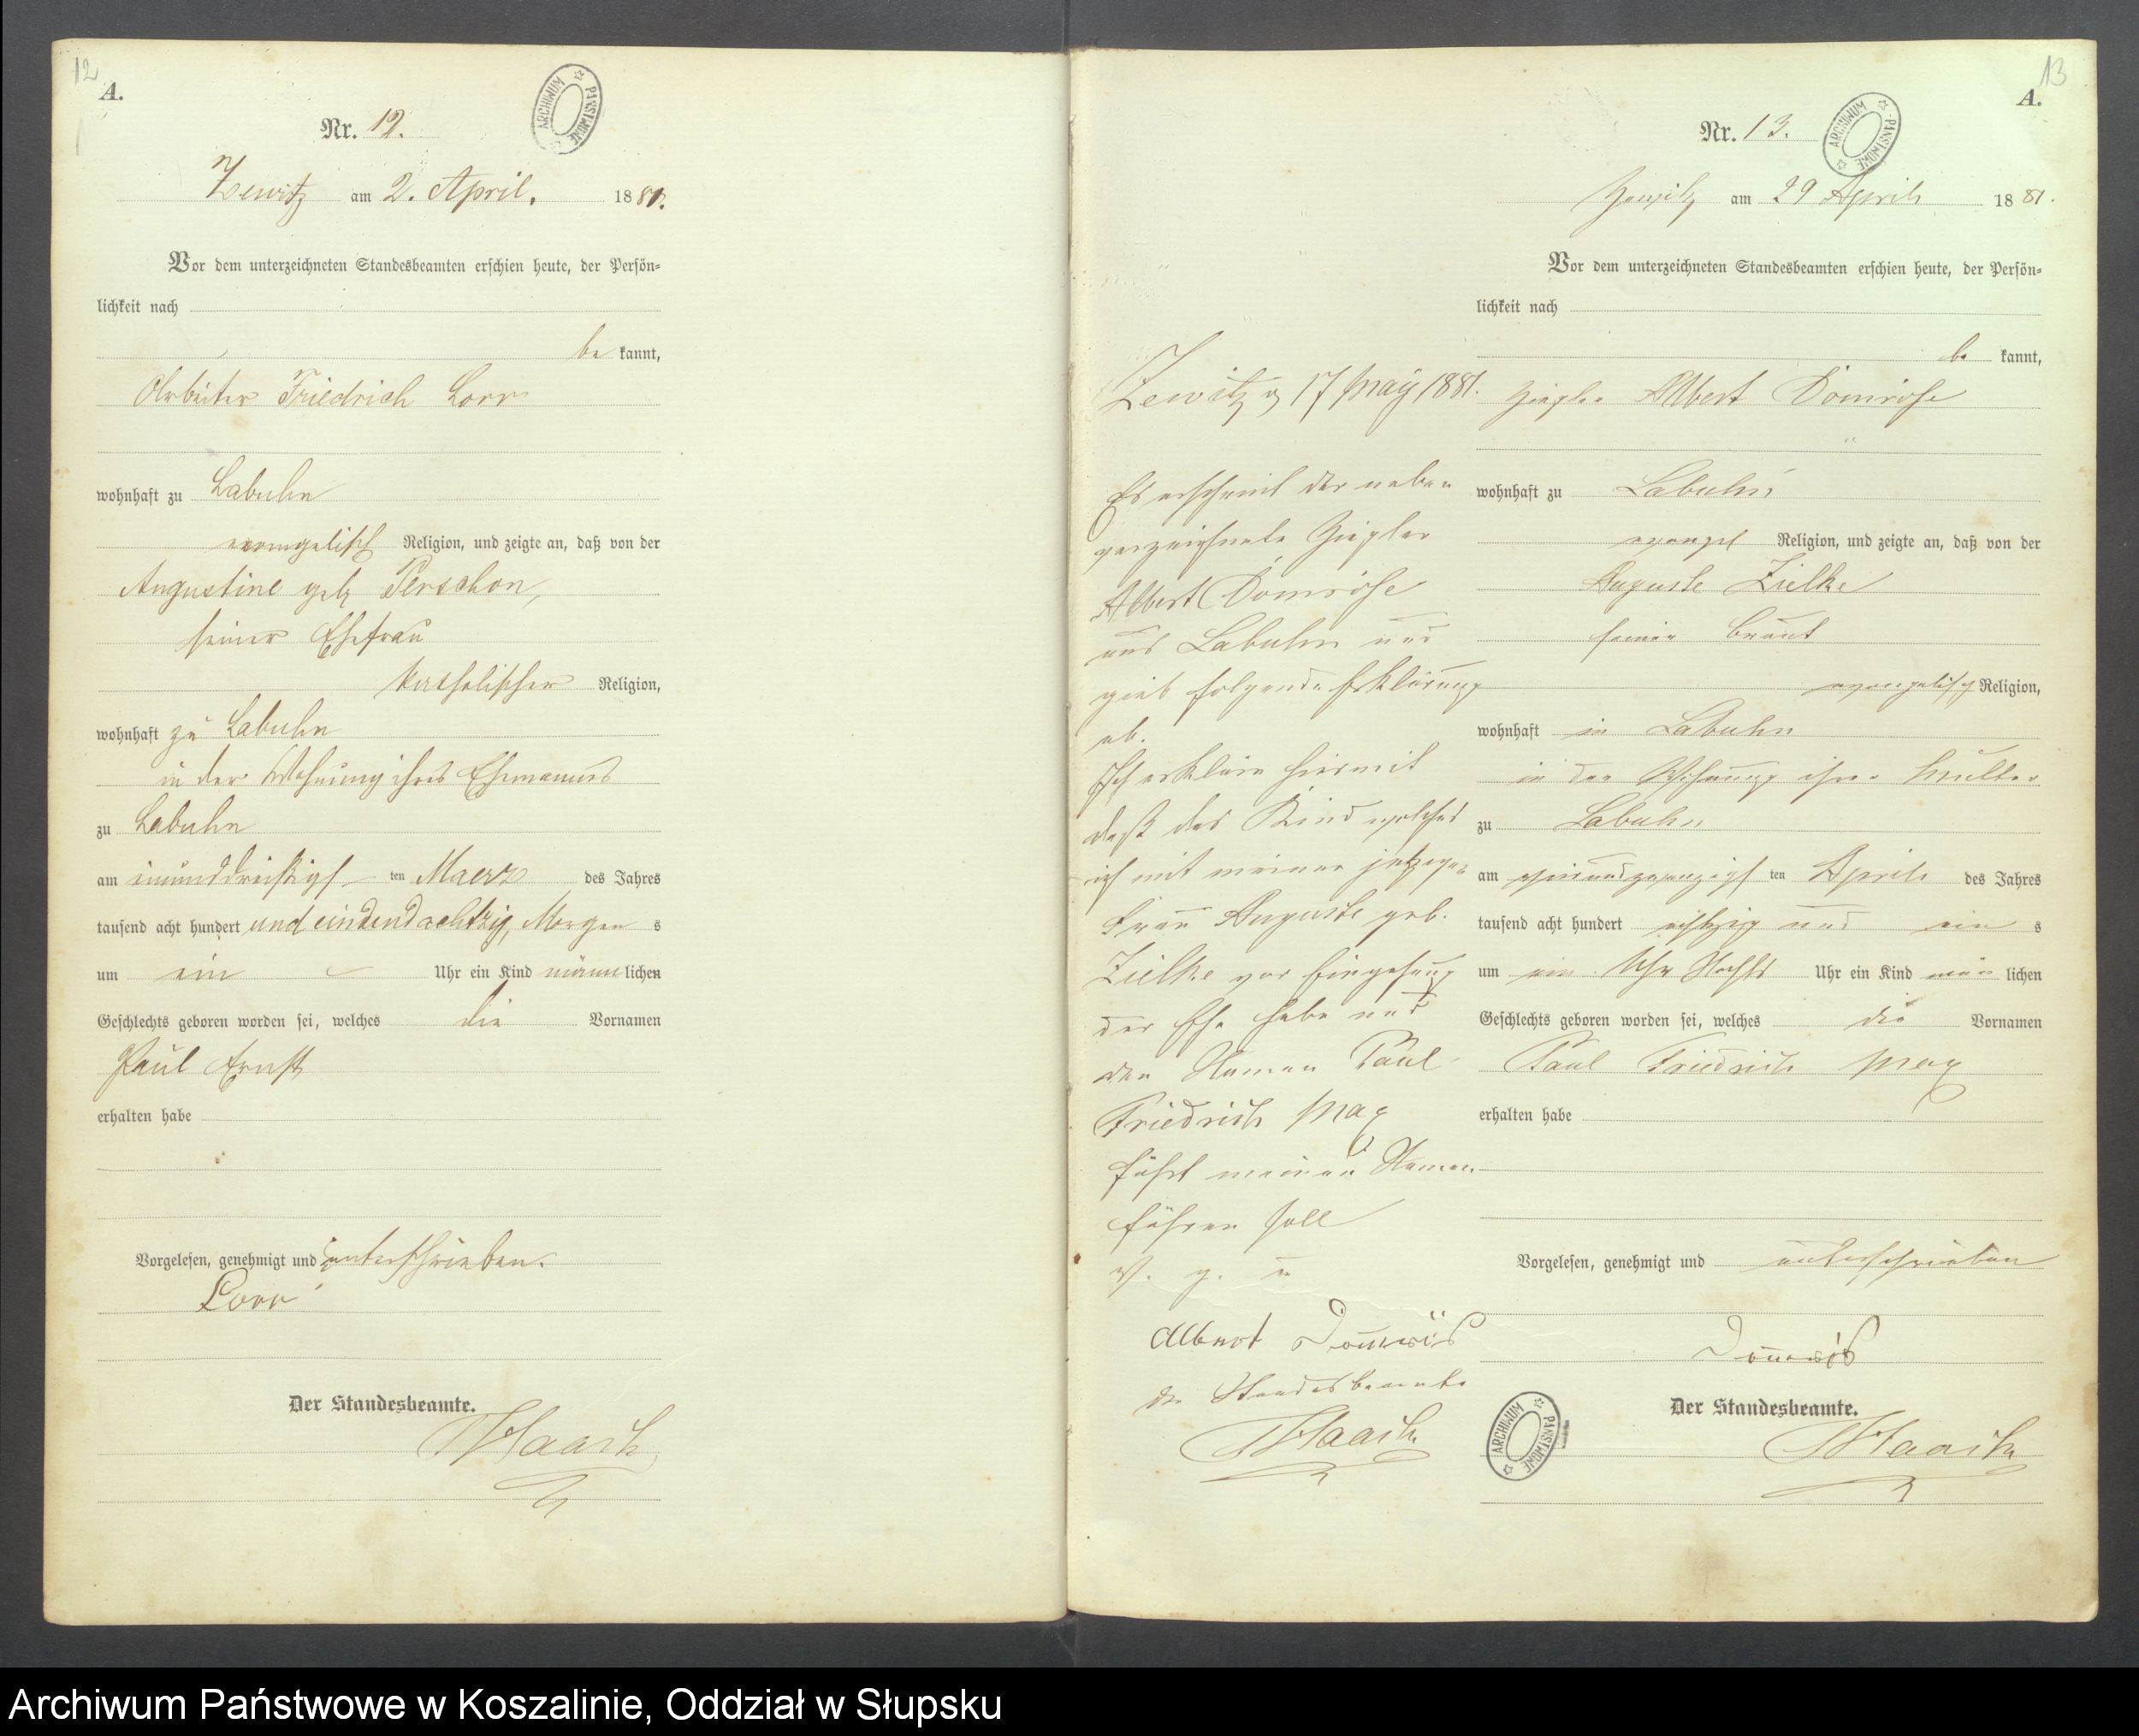 12
A.
Nr. 12.
ARCHIWUM PAŃSTWOWE
Zewitz am 2. April. 1881.
Vor dem unterzeichneten Standesbeamten erschien heute, der Persön-
lichkeit nach
be kannt,
Arbeiter Friedrich Lorr
wohnhaft zu Labuhn
evangelisch Religion, und zeigte an, daß von der
Augustine geb Perschon,
seiner Ehefrau
katholischer Religion,
wohnhaft zu Labuhn
in der Wohnung ihres Ehemannes
zu Labuhn
am einunddreißigst ten Maerz des Jahres
tausend acht hundert und einundachtzig, Morgen s
um ein Uhr ein Kind männlichen
Geschlechts geboren worden sei, welches die Vornamen
Paul Ernst
erhalten habe
Vorgelesen, genehmigt und unterschrieben.
Lorr
Der Standesbeamte.
Haack
13
A.
Nr. 13.
ARCHIWUM PAŃSTWOWE
Zewitz am 29 April 1881.
Vor dem unterzeichneten Standesbeamten erschien heute, der Persön-
lichkeit nach
be kannt,
Ziegler Albert Domröse
wohnhaft zu Labuhn
evangel Religion, und zeigte an, daß von der
Auguste Zielke
seiner Braut
evangelisch Religion,
wohnhaft in Labuhn
in der Wohnung ihrer Mutter
zu Labuhn
am ten April des Jahres
tausend acht hundert achtzig und ein s
um ein Uhr Nachts Uhr ein Kind män lichen
Geschlechts geboren worden sei, welches die Vornamen
Paul Friedrich Max
erhalten habe
Vorgelesen, genehmigt und unterschrieben
Domrös
Der Standesbeamte.
Haack
Zewitz d 17 May 1881.
Es erscheint der neben
verzeichnete Ziegler
Albert Domröse
aus Labuhn und
giebt folgende Erklärung
ab.
Ich erkläre hiermit
daß das Kind welches
ich mit meiner jetzigen
Frau Auguste geb.
Zielke vor Eingehung
der Ehe habe und
den Namen Paul
Friedrich Max
führt meinen Namen
führen soll
v. g. u
Albert Domrös
der Standesbeamte
Haack
ARCHIWUM PAŃSTWOWE
Archiwum Państwowe w Koszalinie, Oddział w Słupsku